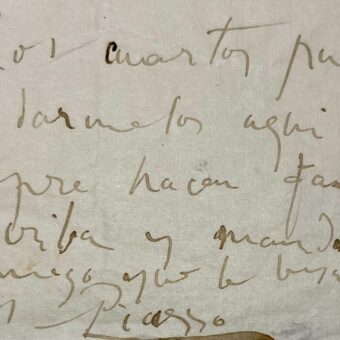 los cuartos pu
darmelos aqui
pre hacen fa
criba y mand
migo que le besa
Picasso